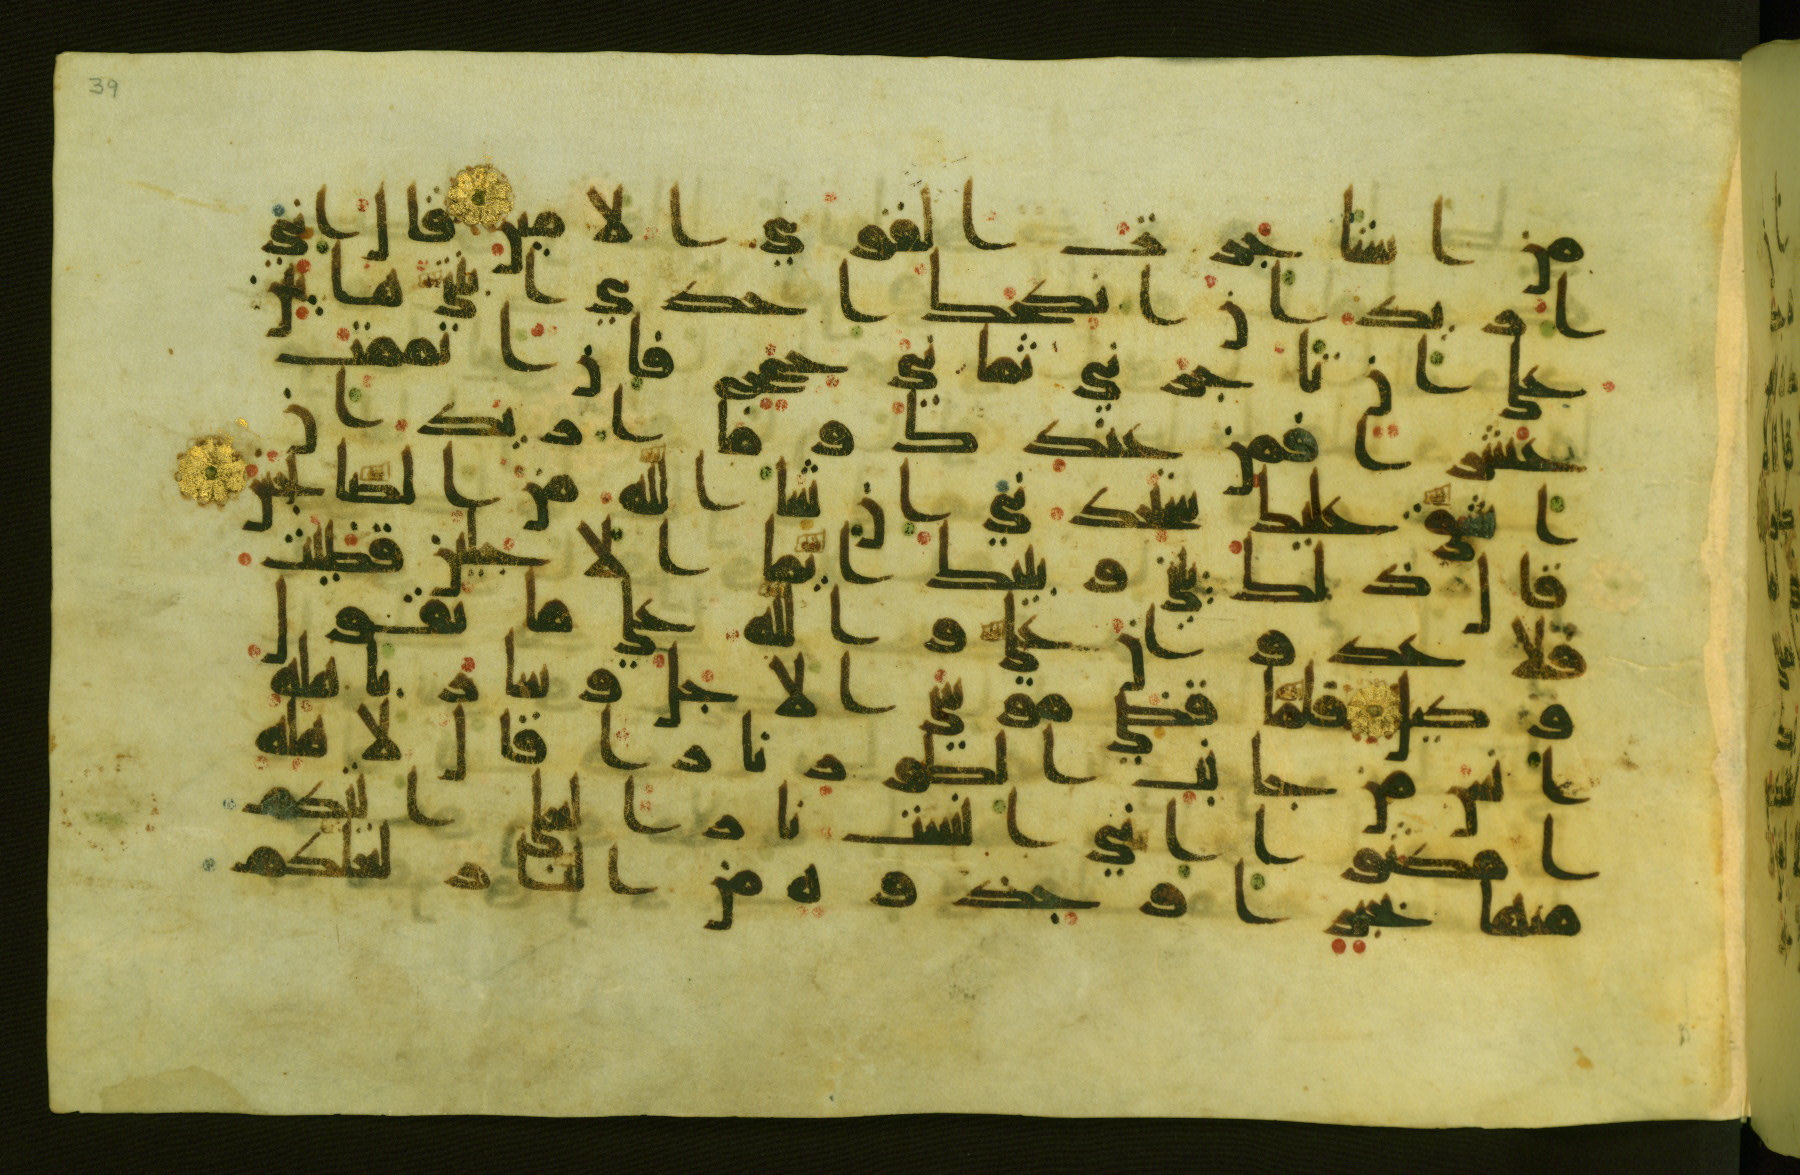 39
من استجرت القوي الامين قال اني
اريد ان انكحك احدي ابنتي هاتين
علي ان تاجرني ثماني حجج فان اتممت
عشرا فمن عندك وما اريد ان
اشق عليك ستجدني ان شا الله من الصالحين
قال ذلك بيني وبينك ايما الاجلين قضيت
فلا عدون علي والله علي ما نقول
وكيل فلما قضي موسي الاجل وسار باهله
انس من جانب الطور نارا قال لاهله
امكثوا اني انست نارا لعلي اتيكم
منها بخبر او جذوه من النار لعلكم